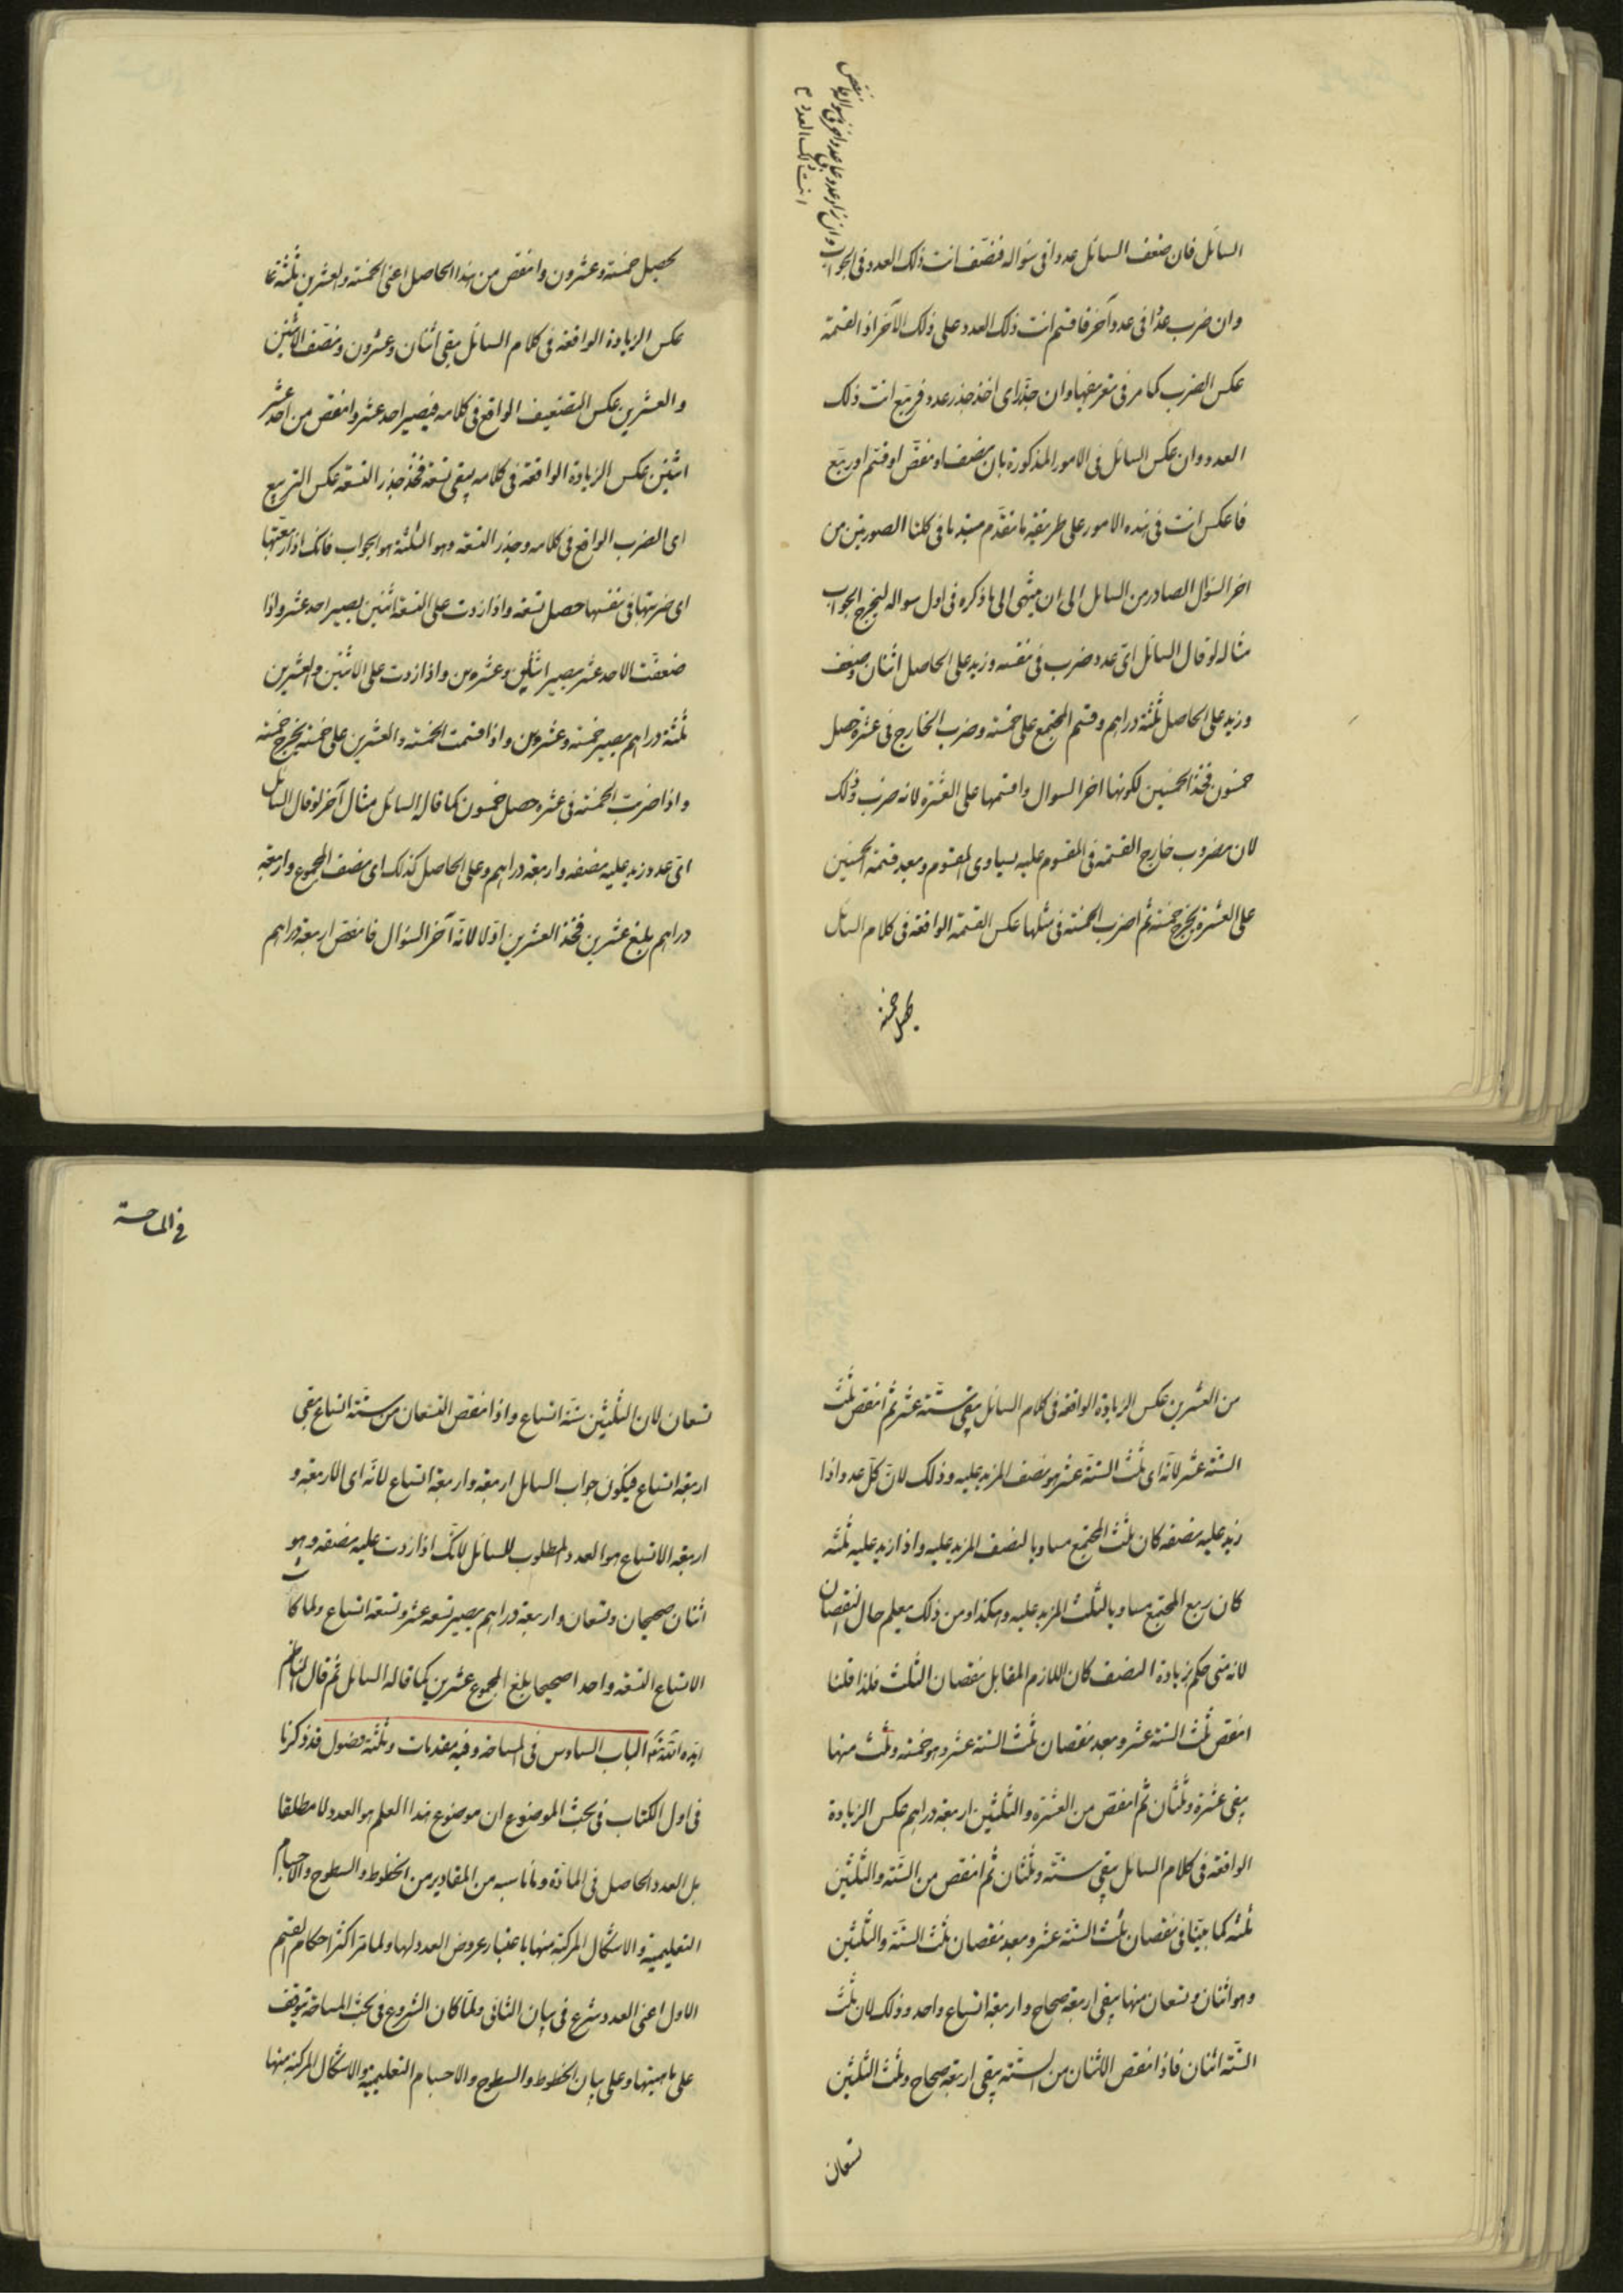 السائل فان ضعف السائل عددا فى سؤاله فنصّف انت ذلك العدد فى الجواب
وان زاد عددا على عدد اخر فى سؤاله فانقص
انت ذلك العدد
وان ضرب عددا فى عدد آخر فاقسم انت ذلك العدد على ذلك الآخر اذ القسمة
عكس الضرب كما مر فى تعريفها وان جذّر اى اخذ جذر عدد فربّع انت ذلك
العدد وان عكس السائل فى الامور المذكورة بان نصف او نقّص او قسم او ربّع
فاعكس انت فى هذه الامور على طريقة ما تقدّم مبتدئا فى كلتا الصورتين من
اخر السؤال الصادر من السايل الى ان ينتهى الى ما ذكره فى اول سواله ليخرج الجواب
مثاله لو قال السائل اىّ عدد ضرب فى نفسه وزيد على الحاصل اثنان وضعف
وزيد على الحاصل ثلثة دراهم وقسم المجتمع على خمسة وضرب الخارج فى عشرة حصل
خمسون فخذ الخمسين لكونها اخر السوال واقسمها على العشرة لانه ضرب وذلك
لان مضروب خارج القسمة فى المقسوم عليه يساوى المقسوم وبعد قسمة الخمسين
على العشرة يخرج خمسة ثم اضرب الخمسة فى مثلها عكس القسمة الواقعة فى كلام السائل
يحصل خمسة
يحصل خمسة وعشرون وانقص من هذا الحاصل اعنى الخمسة والعشرين ثلثة على
عكس الزيادة الواقعة فى كلام السائل يبقى اثنان وعشرون ونصّف الاثنين
والعشرين عكس التضعيف الواقع فى كلامه فيصير احد عشر وانقص من احد عشر
اثنين عكس الزيادة الواقعة فى كلامه يبقى تسعة فخذ جذر التسعة عكس التربيع
اى الضرب الواقع فى كلامه وجذر التسعة وهو الثلثة هو الجواب فانك اذا ربعتها
اى ضربتها فى نفسها حصل تسعة واذا زدت على التسعة اثنين يصير احد عشر واذا
ضعفت الاحد عشر يصير اثنين وعشرين واذا زدت على الاثنين والعشرين
ثلثة دراهم يصير خمسة وعشرين واذا قسمت الخمسة والعشرين على خمسة يخرج خمسة
واذا ضربت الخمسة فى عشرة حصل خمسون كما قال السائل مثال آخر لو قال السائل
اىّ عدد زيد عليه نصفه واربعة دراهم وعلى الحاصل كذلك اى نصف المجموع واربعة
دراهم بلغ عشرين فخذ العشرين اوّلا لانه آخر السؤال فانقص اربعة دراهم
من العشرين عكس الزيادة الواقعة فى كلام السائل يبقى ستّة عشر ثم انقص ثلث
الستة عشر لانّه اى ثلث الستة عشر هو نصف المزيد عليه وذلك لانّ كلّ عدد اذا
زيد عليه نصفه كان ثلث المجتمع مساويا لنصف المزيد عليه واذا زيد عليه ثلثه
كان ربع المجتمع مساويا لثلث المزيد عليه وهكذا ومن ذلك يعلم حال النقصان
لانه متى حكم بزيادة النصف كان اللازم المقابل نقصان الثلث فلذا قلنا
انقص ثلث الستة عشر وبعد نقصان ثلث الستة عشر وهو خمسة وثلث منها
يبقى عشرة وثلثان ثم انقص من العشرة والثلثين اربعة دراهم عكس الزيادة
الواقعة فى كلام السائل يبقى ستّة وثلثان ثم انقص من الستّة والثلثين
ثلثه كما بيّنا فى نقصان ثلث الستّة عشر وبعد نقصان ثلث الستة والثلثين
وهو اثنان وتسعان منها يبقى اربعة صحاح واربعة اتساع واحد وذلك لان ثلث
الستّة اثنان فاذا انقص الاثنان من الستّة يبقى اربعة صحاح وثلث الثلثين
تسعان
فى المساحة
تسعان لان الثلثين ستّة اتساع واذا نقص التسعان من ستّة اتساع يبقى
اربعة اتساع فيكون جواب السايل اربعة واربعة اتساع لانّه اى الاربعة و
اربعة الاتساع هو العدد المطلوب للسائل لانّك اذا زدت عليه نصفه وهو
اثنان صحيحان وتسعان واربعة دراهم يصير تسعة عشر وتسعة اتساع ولما كان
الاتساع التسعة واحدا صحيحا بلغ المجموع عشرين كما قاله السائل ثم قال الناظم
ايّده اللّه الباب السادس فى المساحة وفيه مقدمات وثلثة فصول قد ذكرنا
فى اول الكتاب فى بحث الموضوع ان موضوع هذا العلم هو العدد لا مطلقا
بل العدد الحاصل فى المادّة وما ناسبه من المقادير من الخطوط والسطوح والاجسام
التعليمية والاشكال المركبة منها باعتبار عروض العدد لها ولما مر اكثر احكام القسم
الاول اعنى العدد شرع فى بيان الثانى ولمّا كان الشروع فى بحث المساحة يتوقف
على ماهيتها وعلى بيان الخطوط والسطوح والاجسام التعليمية والاشكال المركبة منها